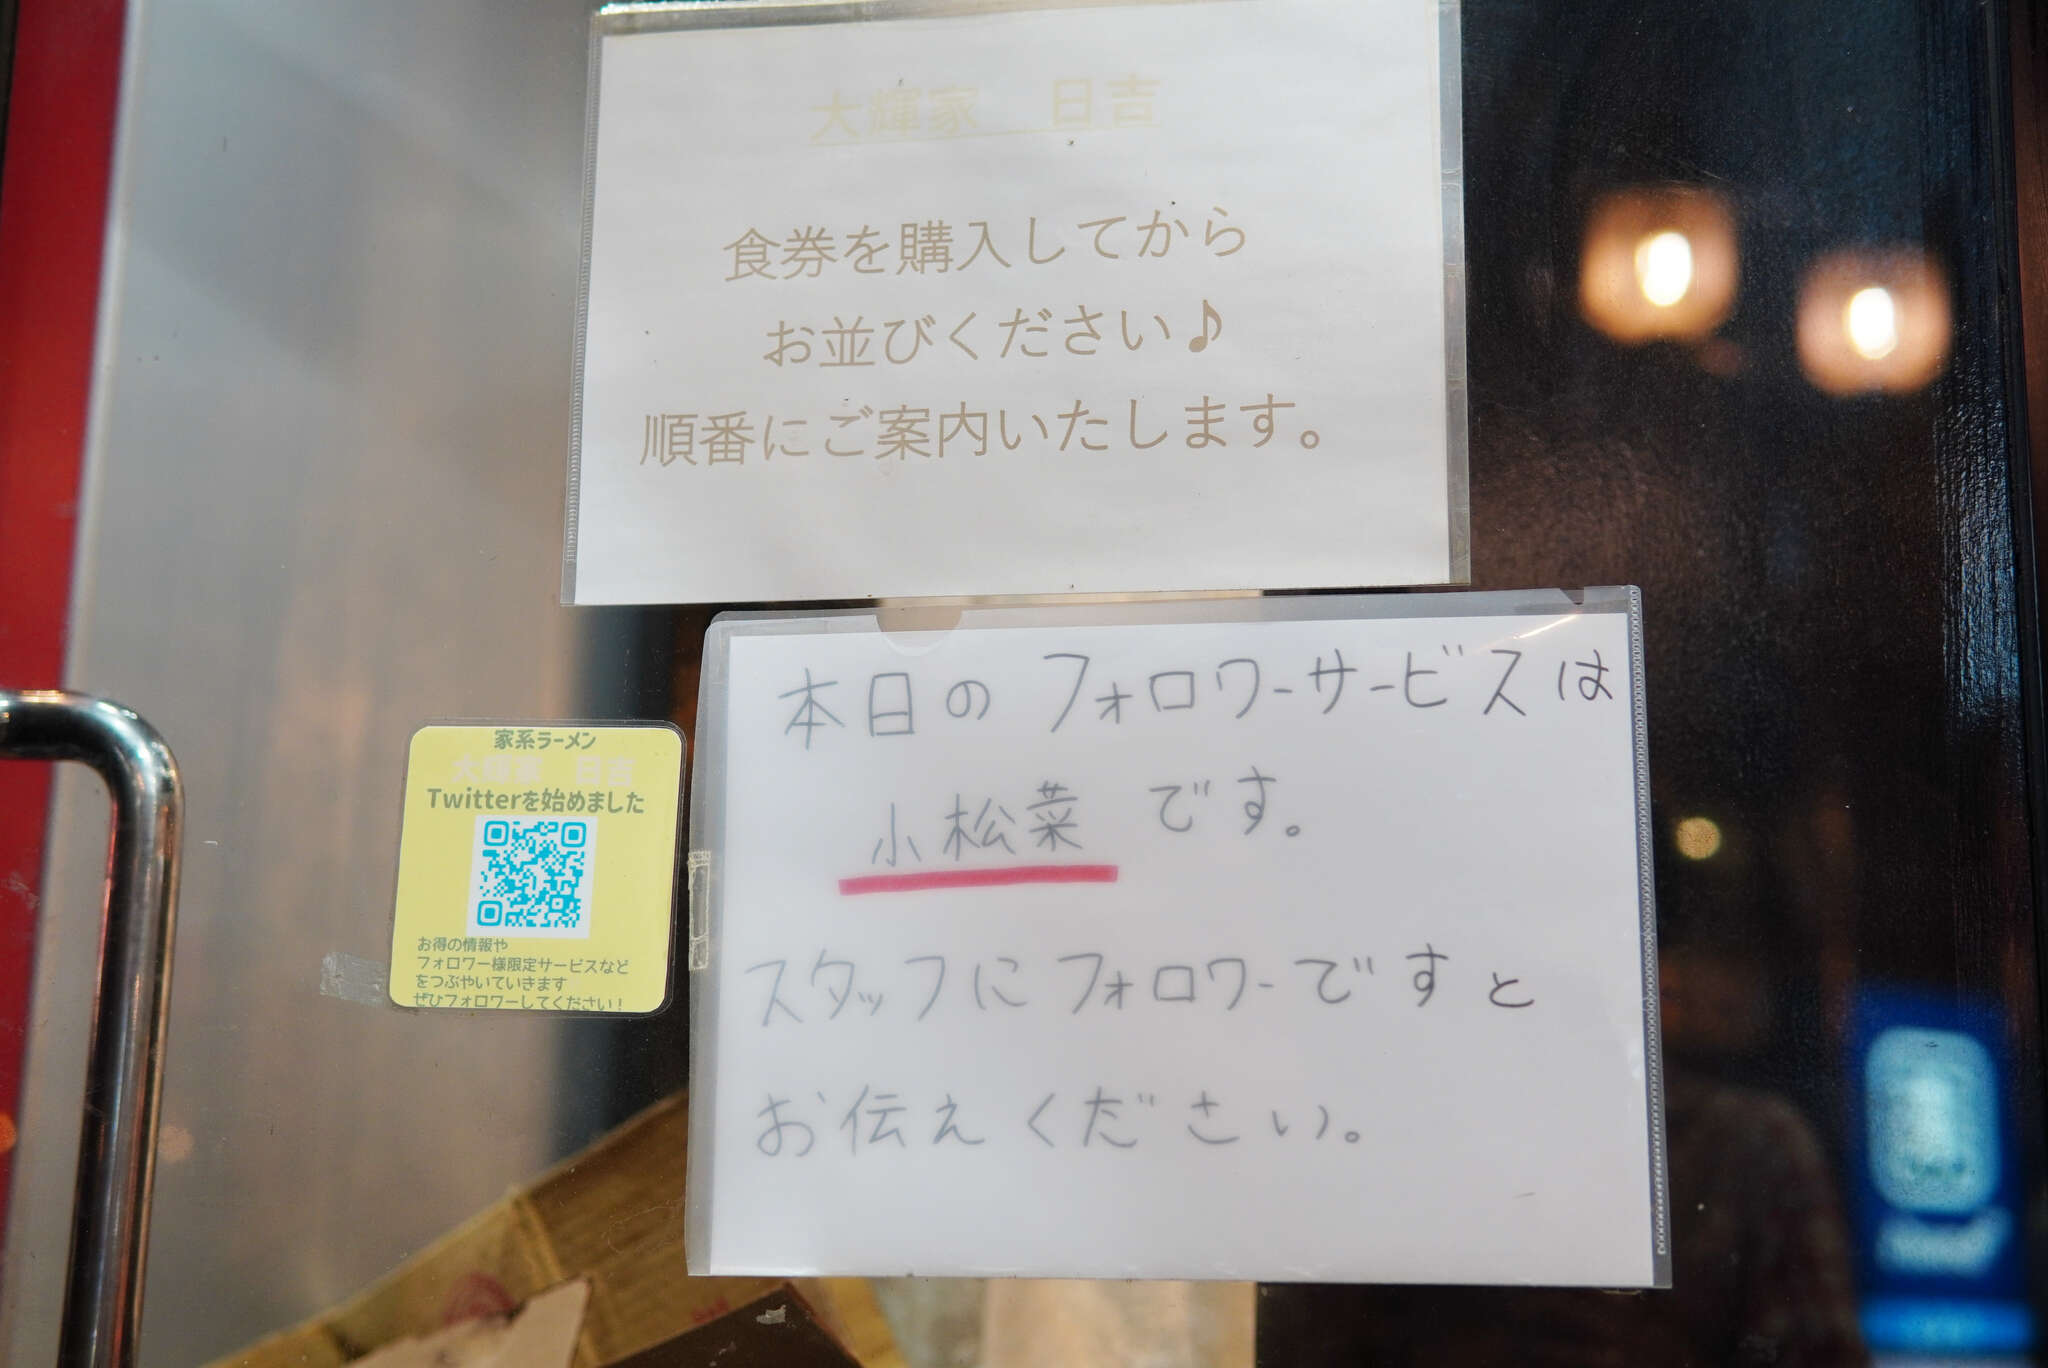 大輝家 日吉
食券を購入してから
お並びください♪
順番にご案内いたします。
本日のフォロワーサービスは
小松菜です。
スタッフにフォロワーですと
お伝えください。
家系ラーメン
大輝家 日吉
Twitterを始めました
お得の情報や
フォロワー様限定サービスなど
をつぶやいていきます
ぜひフォロワーしてください！